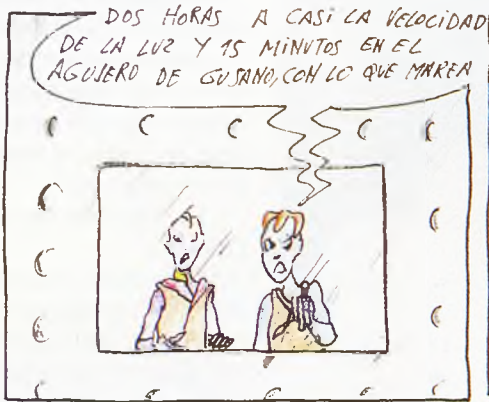 DOS HORAS A CASI LA VELOCIDAD
DE LA LUZ Y 15 MINUTOS EN EL
AGUJERO DE GUSANO, CON LO QUE MAREA